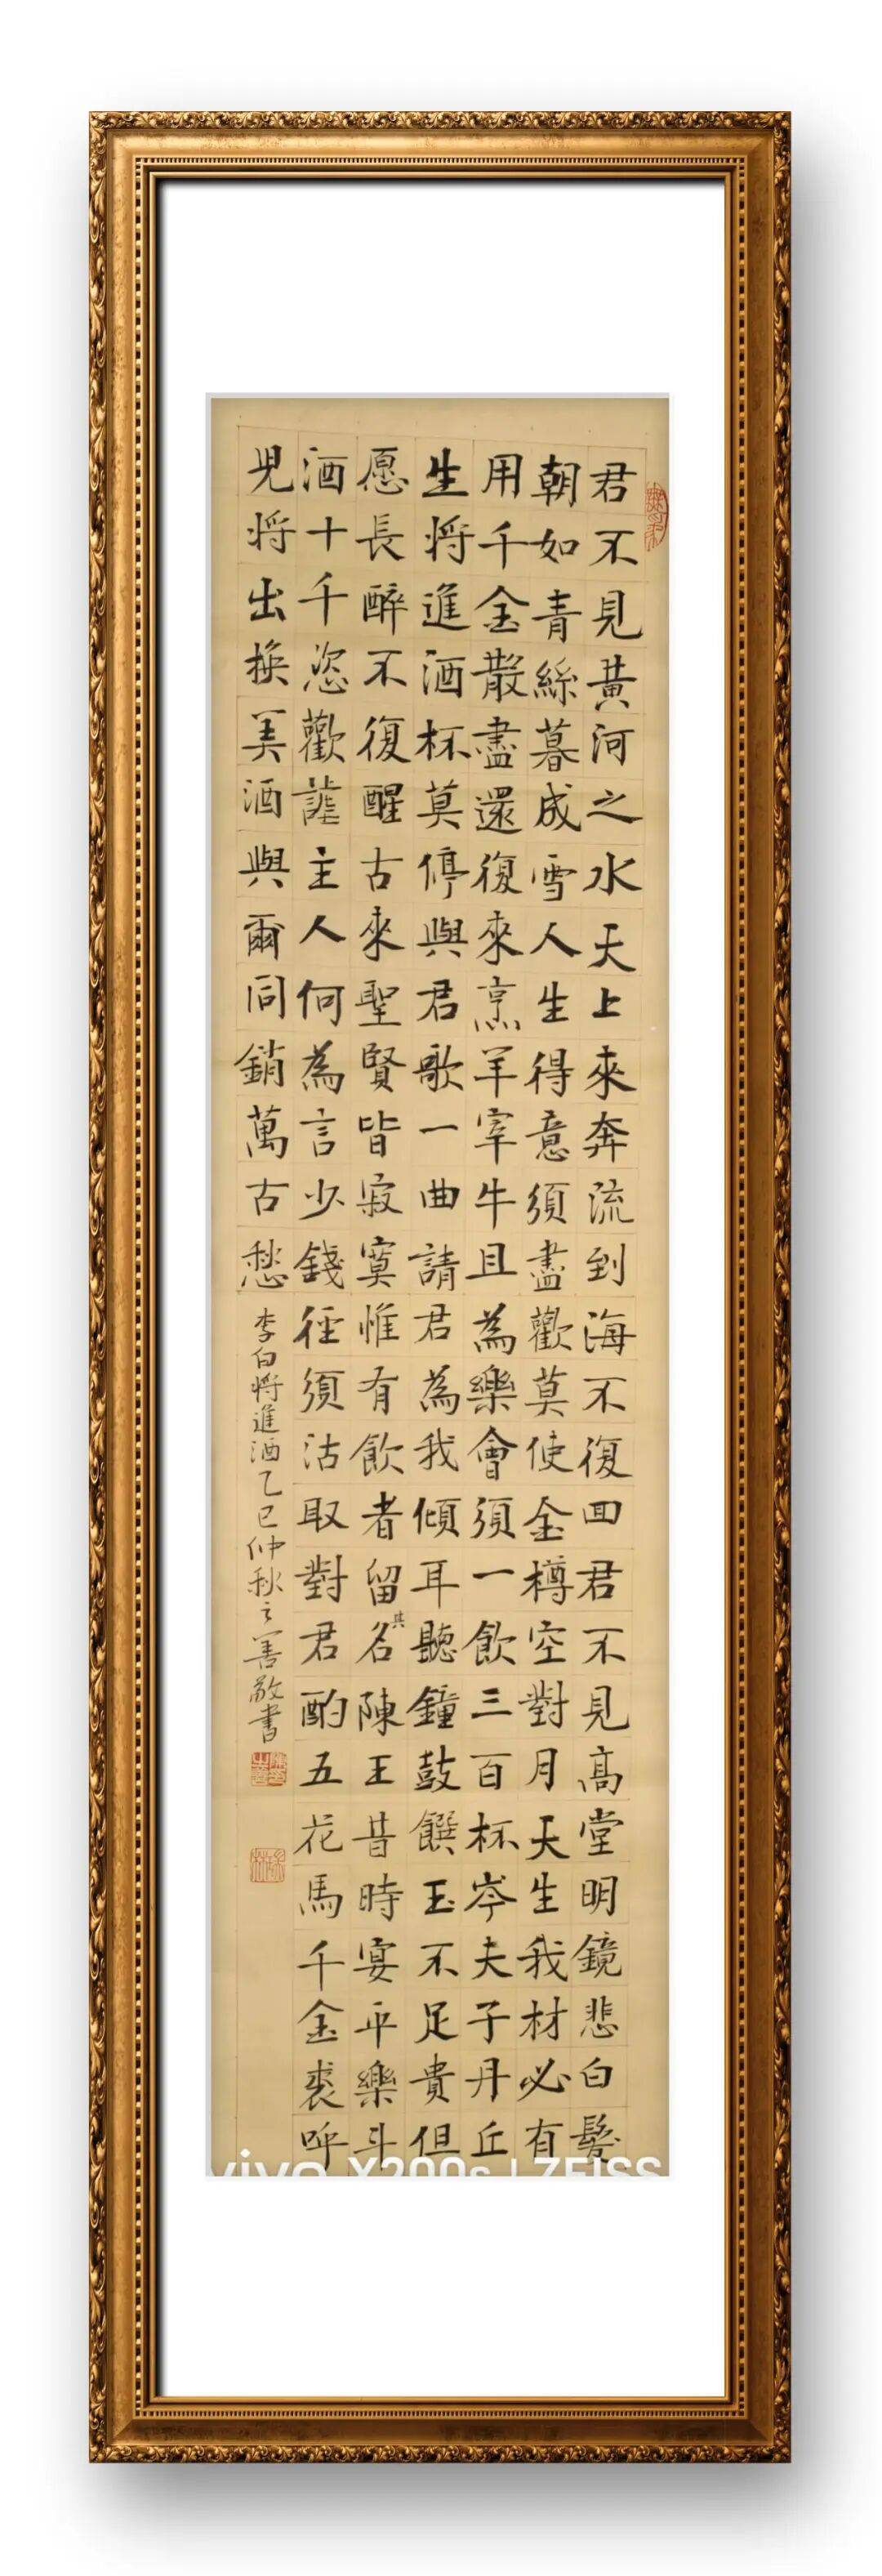 君不見黃河之水天上來奔流到海不復回君不見高堂明鏡悲白髮
朝如青絲暮成雪人生得意須盡歡莫使金樽空對月天生我材必有
用千金散盡還復來烹羊宰牛且為樂會須一飲三百杯岑夫子丹丘
生將進酒杯莫停與君歌一曲請君為我傾耳聽鐘鼓饌玉不足貴但
愿長醉不復醒古來聖賢皆寂寞惟有飲者留其名陳王昔時宴平樂斗
酒十千恣歡謔主人何為言少錢徑須沽取對君酌五花馬千金裘呼
兒將出換美酒與爾同銷萬古愁
李白將進酒乙巳仲秋之善敬書
vivo X200s | ZEISS